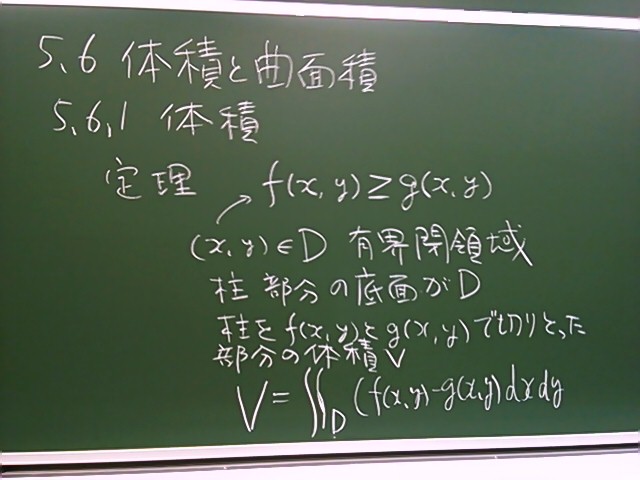 5.6 体積と曲面積
5.6.1 体積
定理 f(x,y)≧g(x,y)
(x,y)∈D 有界閉領域
柱部分の底面がD
柱をf(x,y)とg(x,y)で切りとった
部分の体積V
V=∬_D (f(x,y)-g(x,y)dxdy